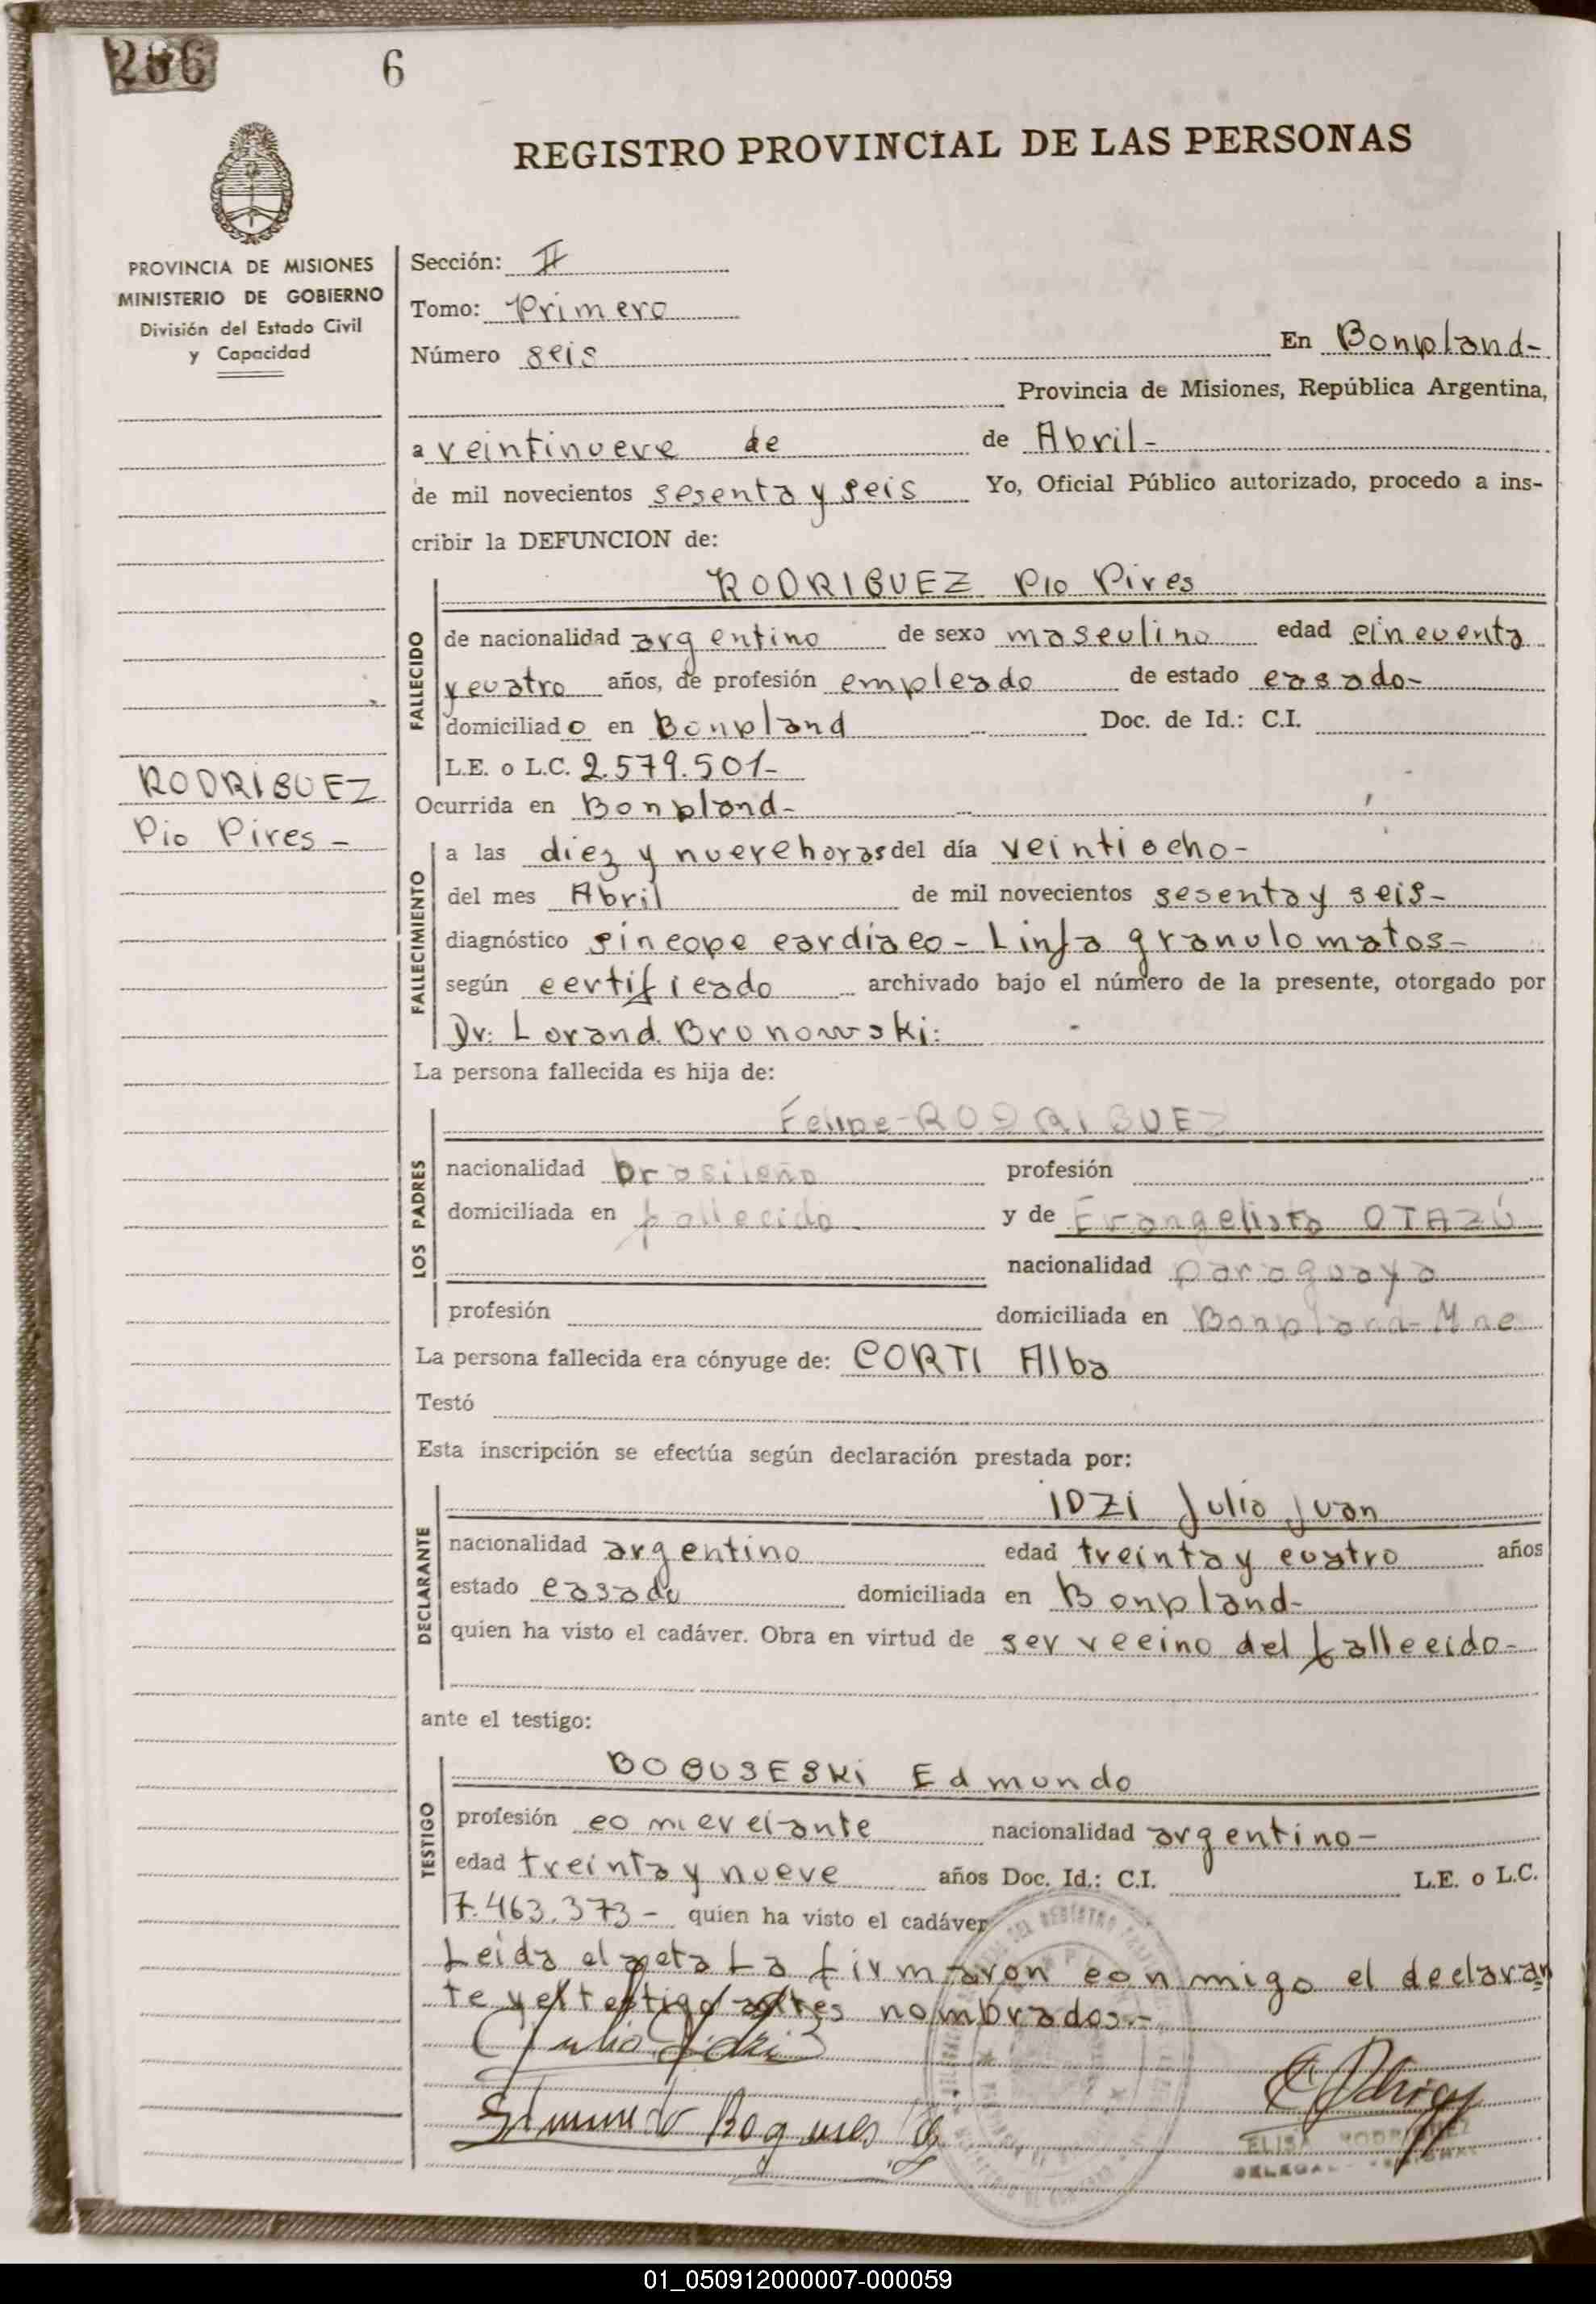 266
6
REGISTRO PROVINCIAL DE LAS PERSONAS
PROVINCIA DE MISIONES
MINISTERIO DE GOBIERNO
División del Estado Civil
y Capacidad
RODRIGUEZ
Pio Pires -
Sección: II
Tomo: Primero
Número seis En Bonpland-
Provincia de Misiones, República Argentina,
a veintinueve de de Abril-
de mil novecientos sesenta y seis Yo, Oficial Público autorizado, procedo a ins-
cribir la DEFUNCION de:
FALLECIDO
RODRIGUEZ Pio Pires
de nacionalidad argentino de sexo masculino edad cincuenta
y cuatro años, de profesión empleado de estado casado-
domiciliado en Bonpland Doc. de Id.: C.I.
L.E. o L.C. 2.579.501-
Ocurrida en Bonpland-
FALLECIMIENTO
a las diez y nueve horas del día veintiocho-
del mes Abril de mil novecientos sesenta y seis-
diagnóstico sincope cardiaco - Linfa granulomatos-
según certificado archivado bajo el número de la presente, otorgado por
Dr: Lorand Bronowski:
La persona fallecida es hija de:
LOS PADRES
Felipe-RODRIGUEZ
nacionalidad brasileño profesión
domiciliada en fallecido y de Evangelista OTAZÚ
nacionalidad paraguaya
profesión domiciliada en Bonpland-Mnes
La persona fallecida era cónyuge de: CORTI Alba
Testó
Esta inscripción se efectúa según declaración prestada por:
DECLARANTE
IDZI Julio Juan
nacionalidad argentino edad treinta y cuatro años
estado casado domiciliada en Bonpland-
quien ha visto el cadáver. Obra en virtud de ser vecino del fallecido-
ante el testigo:
TESTIGO
BOGUSESKI Edmundo
profesión comerciante nacionalidad argentino-
edad treinta y nueve años Doc. Id.: C.I. L.E. o L.C.
7.463.373- quien ha visto el cadáver
Leida el acta La firmaron conmigo el declaran
te y el testigo antes nombrados.-
Julio Idzi
ELISA RODRIGUEZ
01_050912000007-000059